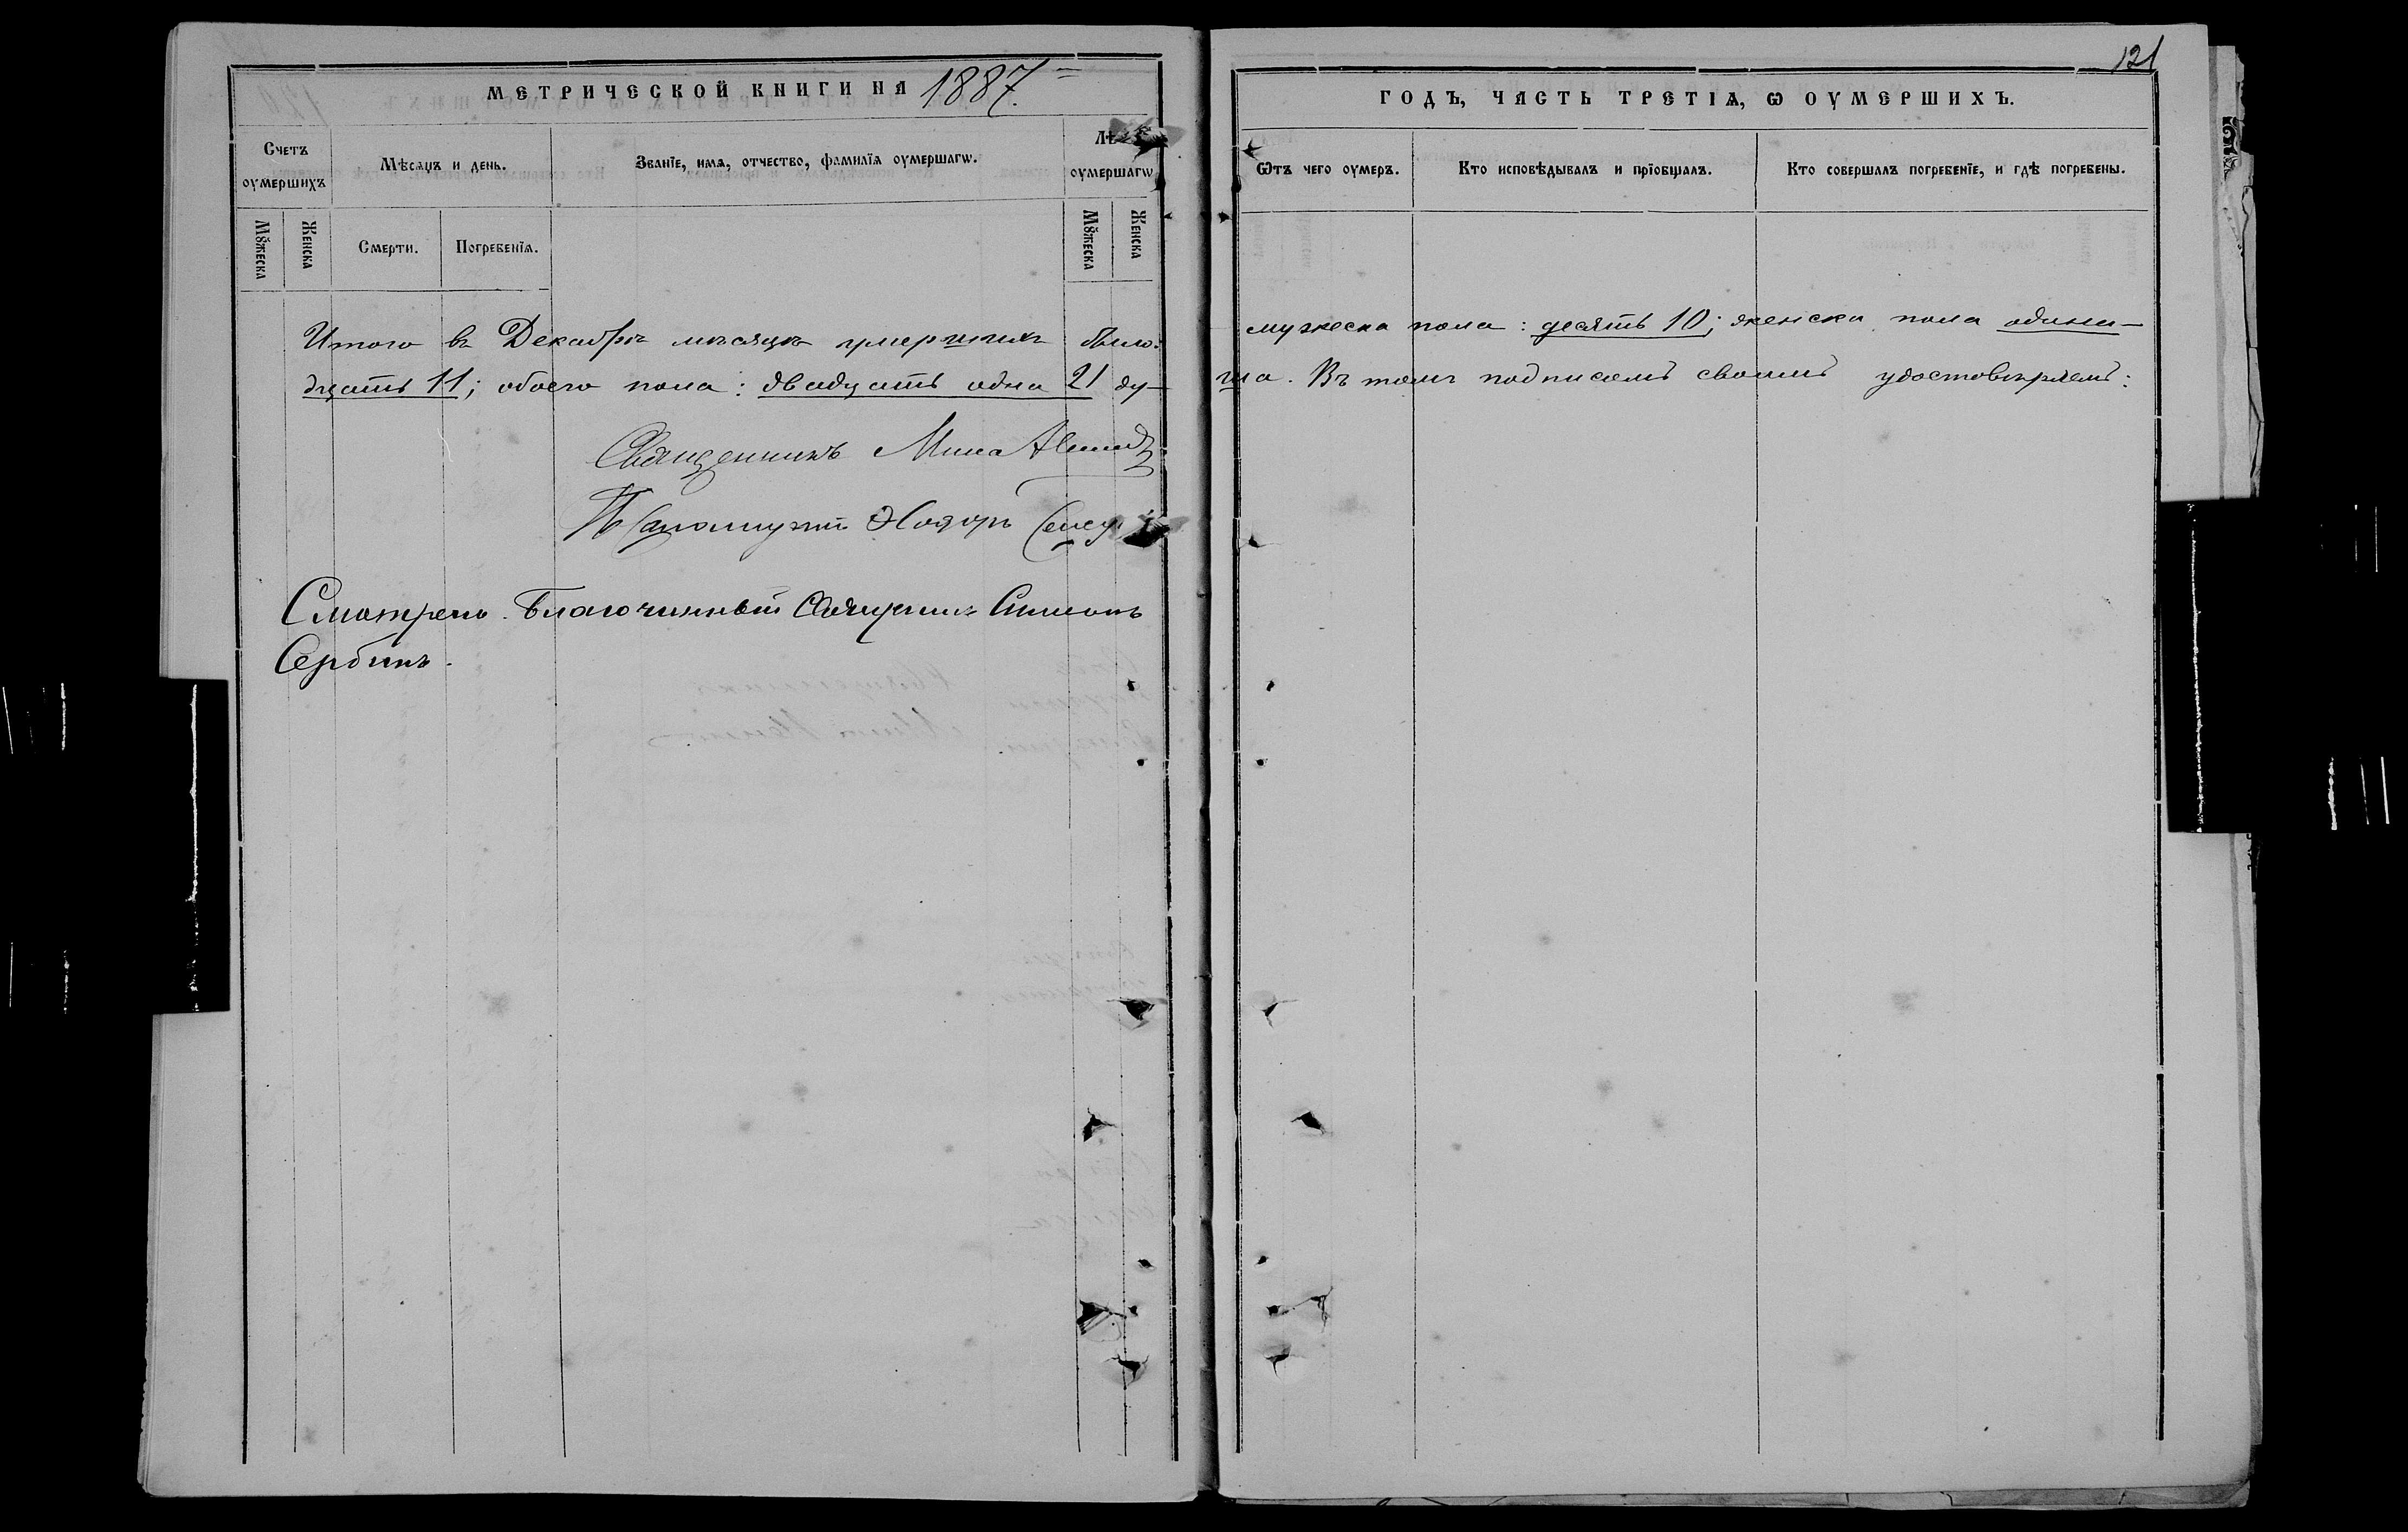 121
МЕТРИЧЕСКОЙ КНИГИ НА 1887.
ГОДЪ, ЧАСТЬ ТРЕТІѦ, Ѡ ОУМЕРШИХЪ.
Счетъ оумершихъ
Мѣсѧцъ и день.
Званїе, имѧ, отчество, фамилїѧ оумершагѡ.
оумершагѡ
Ѿтъ чего оумеръ.
Кто исповѣдывалъ и прїобщалъ.
Кто совершалъ погребенїе, и гдѣ погребены.
Мꙋжеска
Женска
Смерти.
Погребенїѧ.
Мꙋжеска
Женска
Итого въ Декабрѣ мѣсяцѣ умершихъ было: мужеска пола: десять 10; женска пола одина-
дцать 11; обоего пола: двадцать одна 21 ду- ша. Въ томъ подписомъ своимъ удостовѣряемъ:
Священникъ Мина
Псаломщикъ
Смотрелъ. Благочинный Священникъ Симеонъ
Сербинъ.